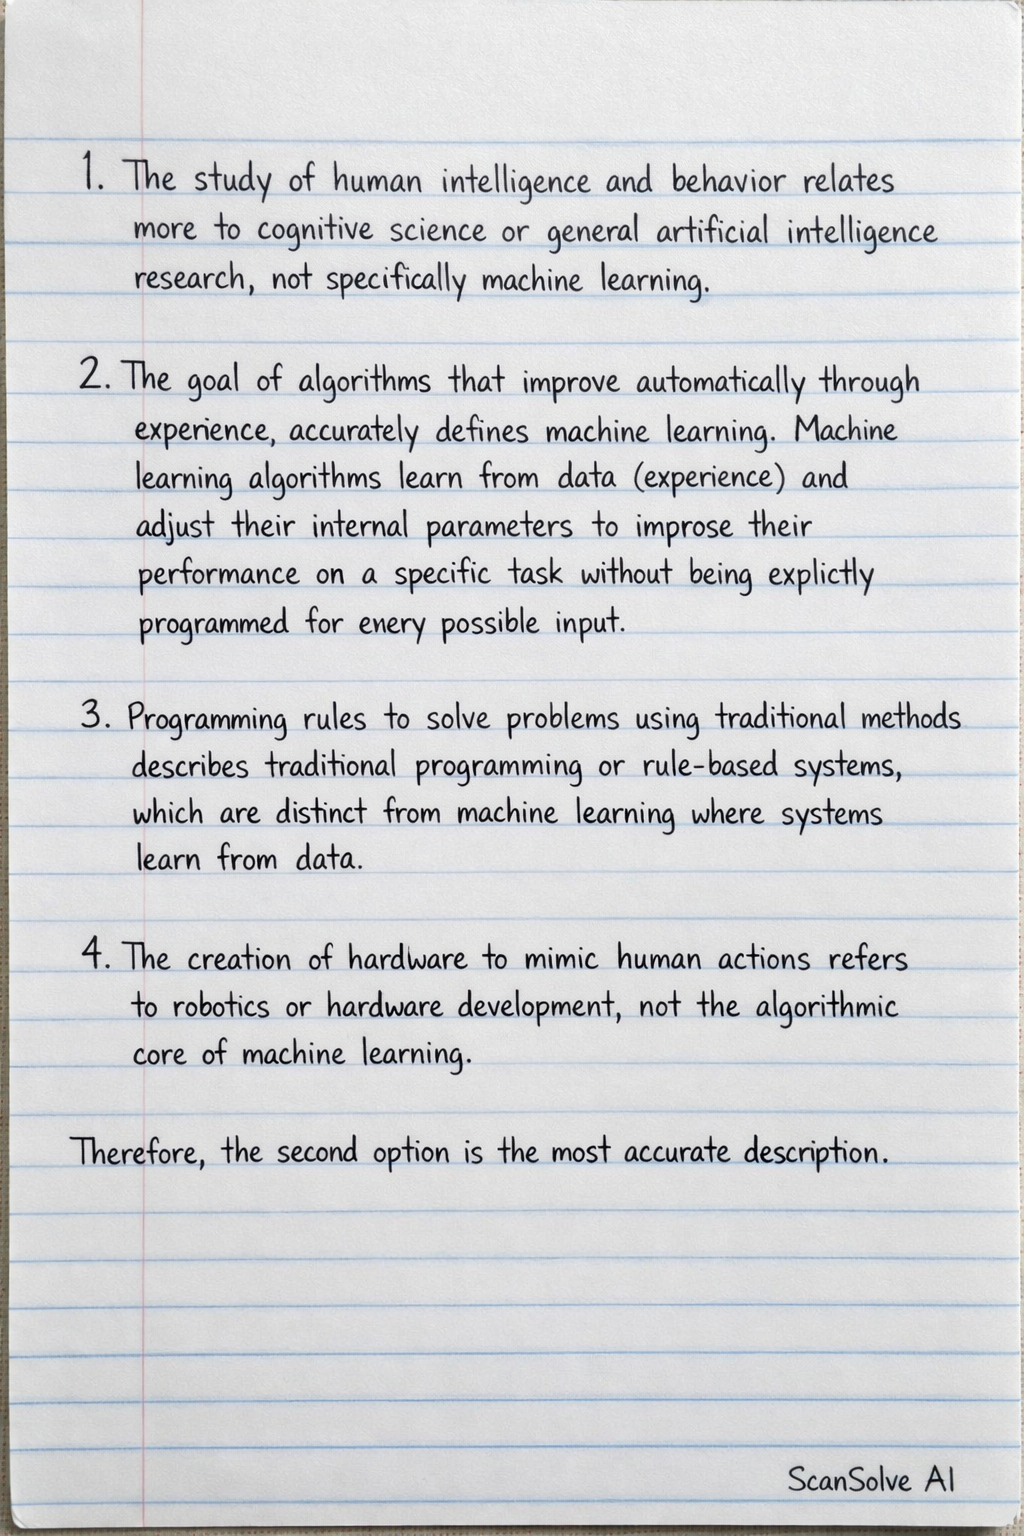 1. The study of human intelligence and behavior relates
more to cognitive science or general artificial intelligence
research, not specifically machine learning.
2. The goal of algorithms that improve automatically through
experience, accurately defines machine learning. Machine
learning algorithms learn from data (experience) and
adjust their internal parameters to improse their
performance on a specific task without being explictly
programmed for enery possible input.
3. Programming rules to solve problems using traditional methods
describes traditional programming or rule-based systems,
which are distinct from machine learning where systems
learn from data.
4. The creation of hardware to mimic human actions refers
to robotics or hardware development, not the algorithmic
core of machine learning.
Therefore, the second option is the most accurate description.
ScanSolve AI